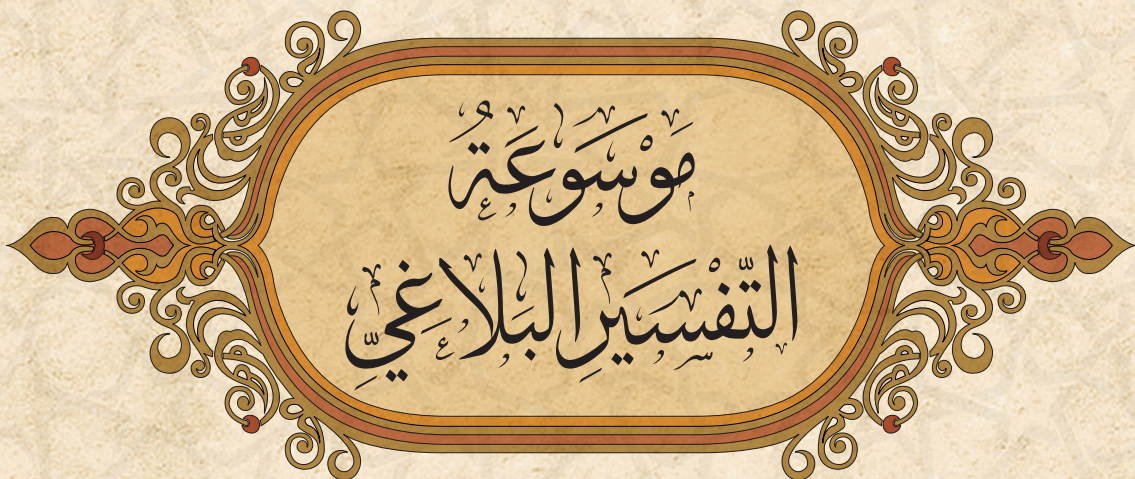 مَوْسَوعَةُ
التَّفْسَيرِ البَلَاغَيِّ